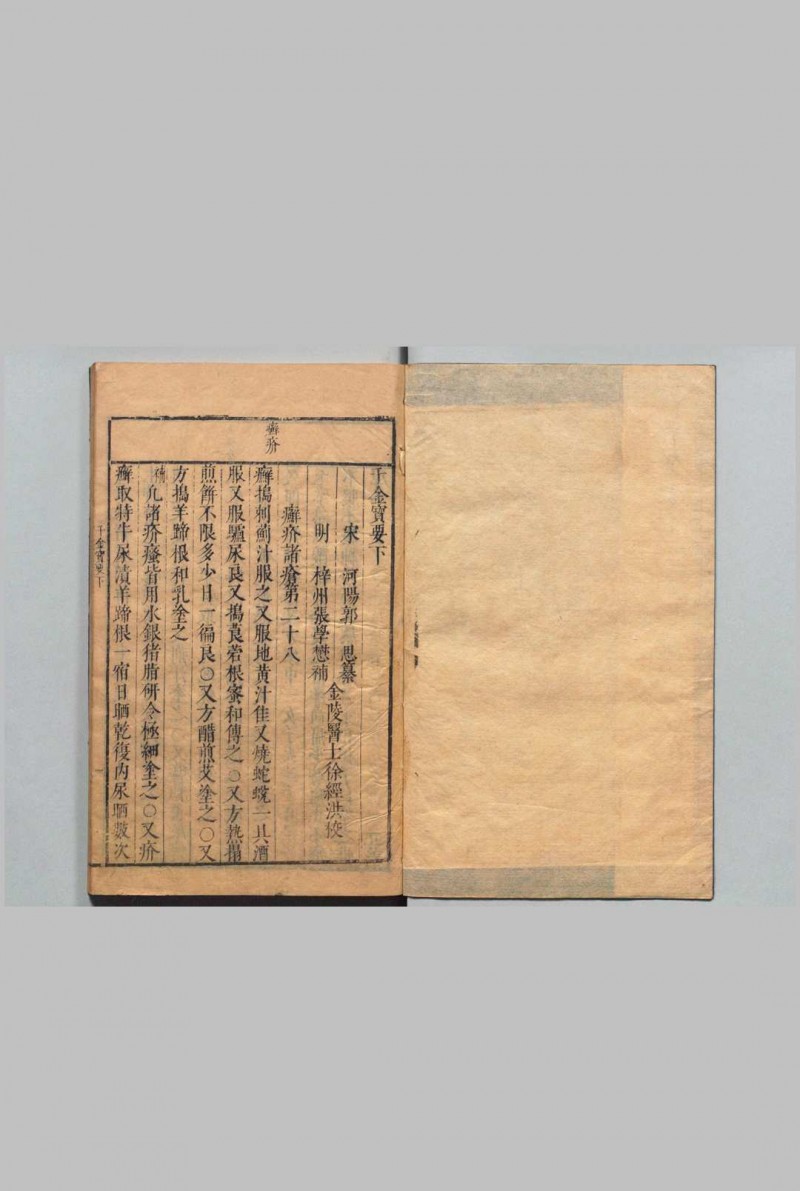 千金寶要下
宋 河陽郭 思纂
明 梓州張學懋補
金陵醫士徐經洪校
癬疥諸瘡第二十八
癬疥
癬搗刺薊汁服之又服地黃汁佳又燒蛇蛻一具酒
服又服驢尿良又搗莨菪根蜜和傅之○又方熱搨
煎餅不限多少日一徧良○又方醋煎艾塗之○又
方搗羊蹄根和乳塗之
凢諸疥瘙皆用水銀猪脂研令極細塗之○又疥
癬取特牛尿漬羊蹄根一宿日晒乾復内尿晒數次
千金寶要下